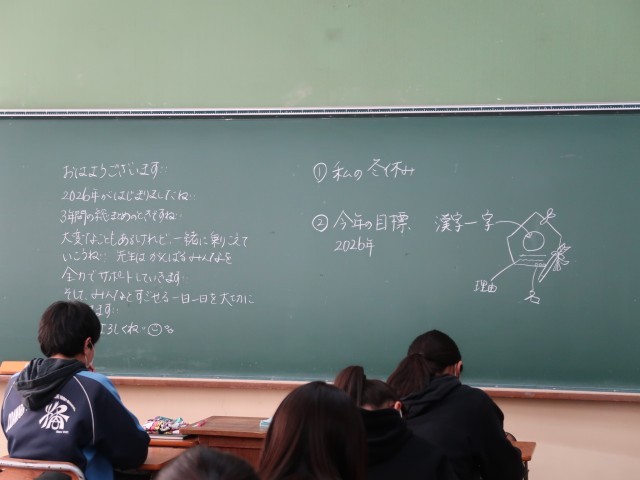 おはようございます…
2026年がはじまりましたね…
3年間の総まとめのときですね…
大変なこともあるけれど、一緒に乗りこえて
いこうね… 先生はがんばるみんなを
全力でサポートしていきます…
そして、みんなとすごせる一日一日を大切に
ます…
ろしくね
① 私の冬休み
② 今年の目標
2026年
漢字一字
理由
名